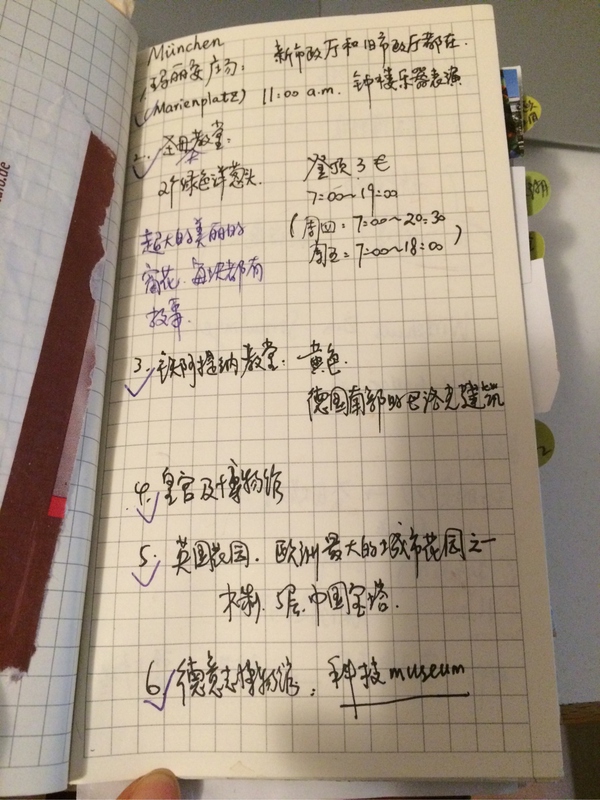 München
1.玛丽安广场: 新市政厅和旧市政厅都在.
(Marienplatz) 11:00 a.m. 钟楼乐器表演
2. 圣母教堂.
2个绿色洋葱头.
登顶 3 €
7:00~19:00
(周四: 7:00~20:30
周五: 7:00~18:00)
超大的美丽的
窗花. 每块都有
故事.
3. 铁阿提纳教堂. 黄色.
德国南部的巴洛克建筑
4. 皇宫及博物馆
5. 英国花园. 欧洲最大的城市花园之一
木制. 5层. 中国宝塔.
6. 德意志博物馆: 科技 museum